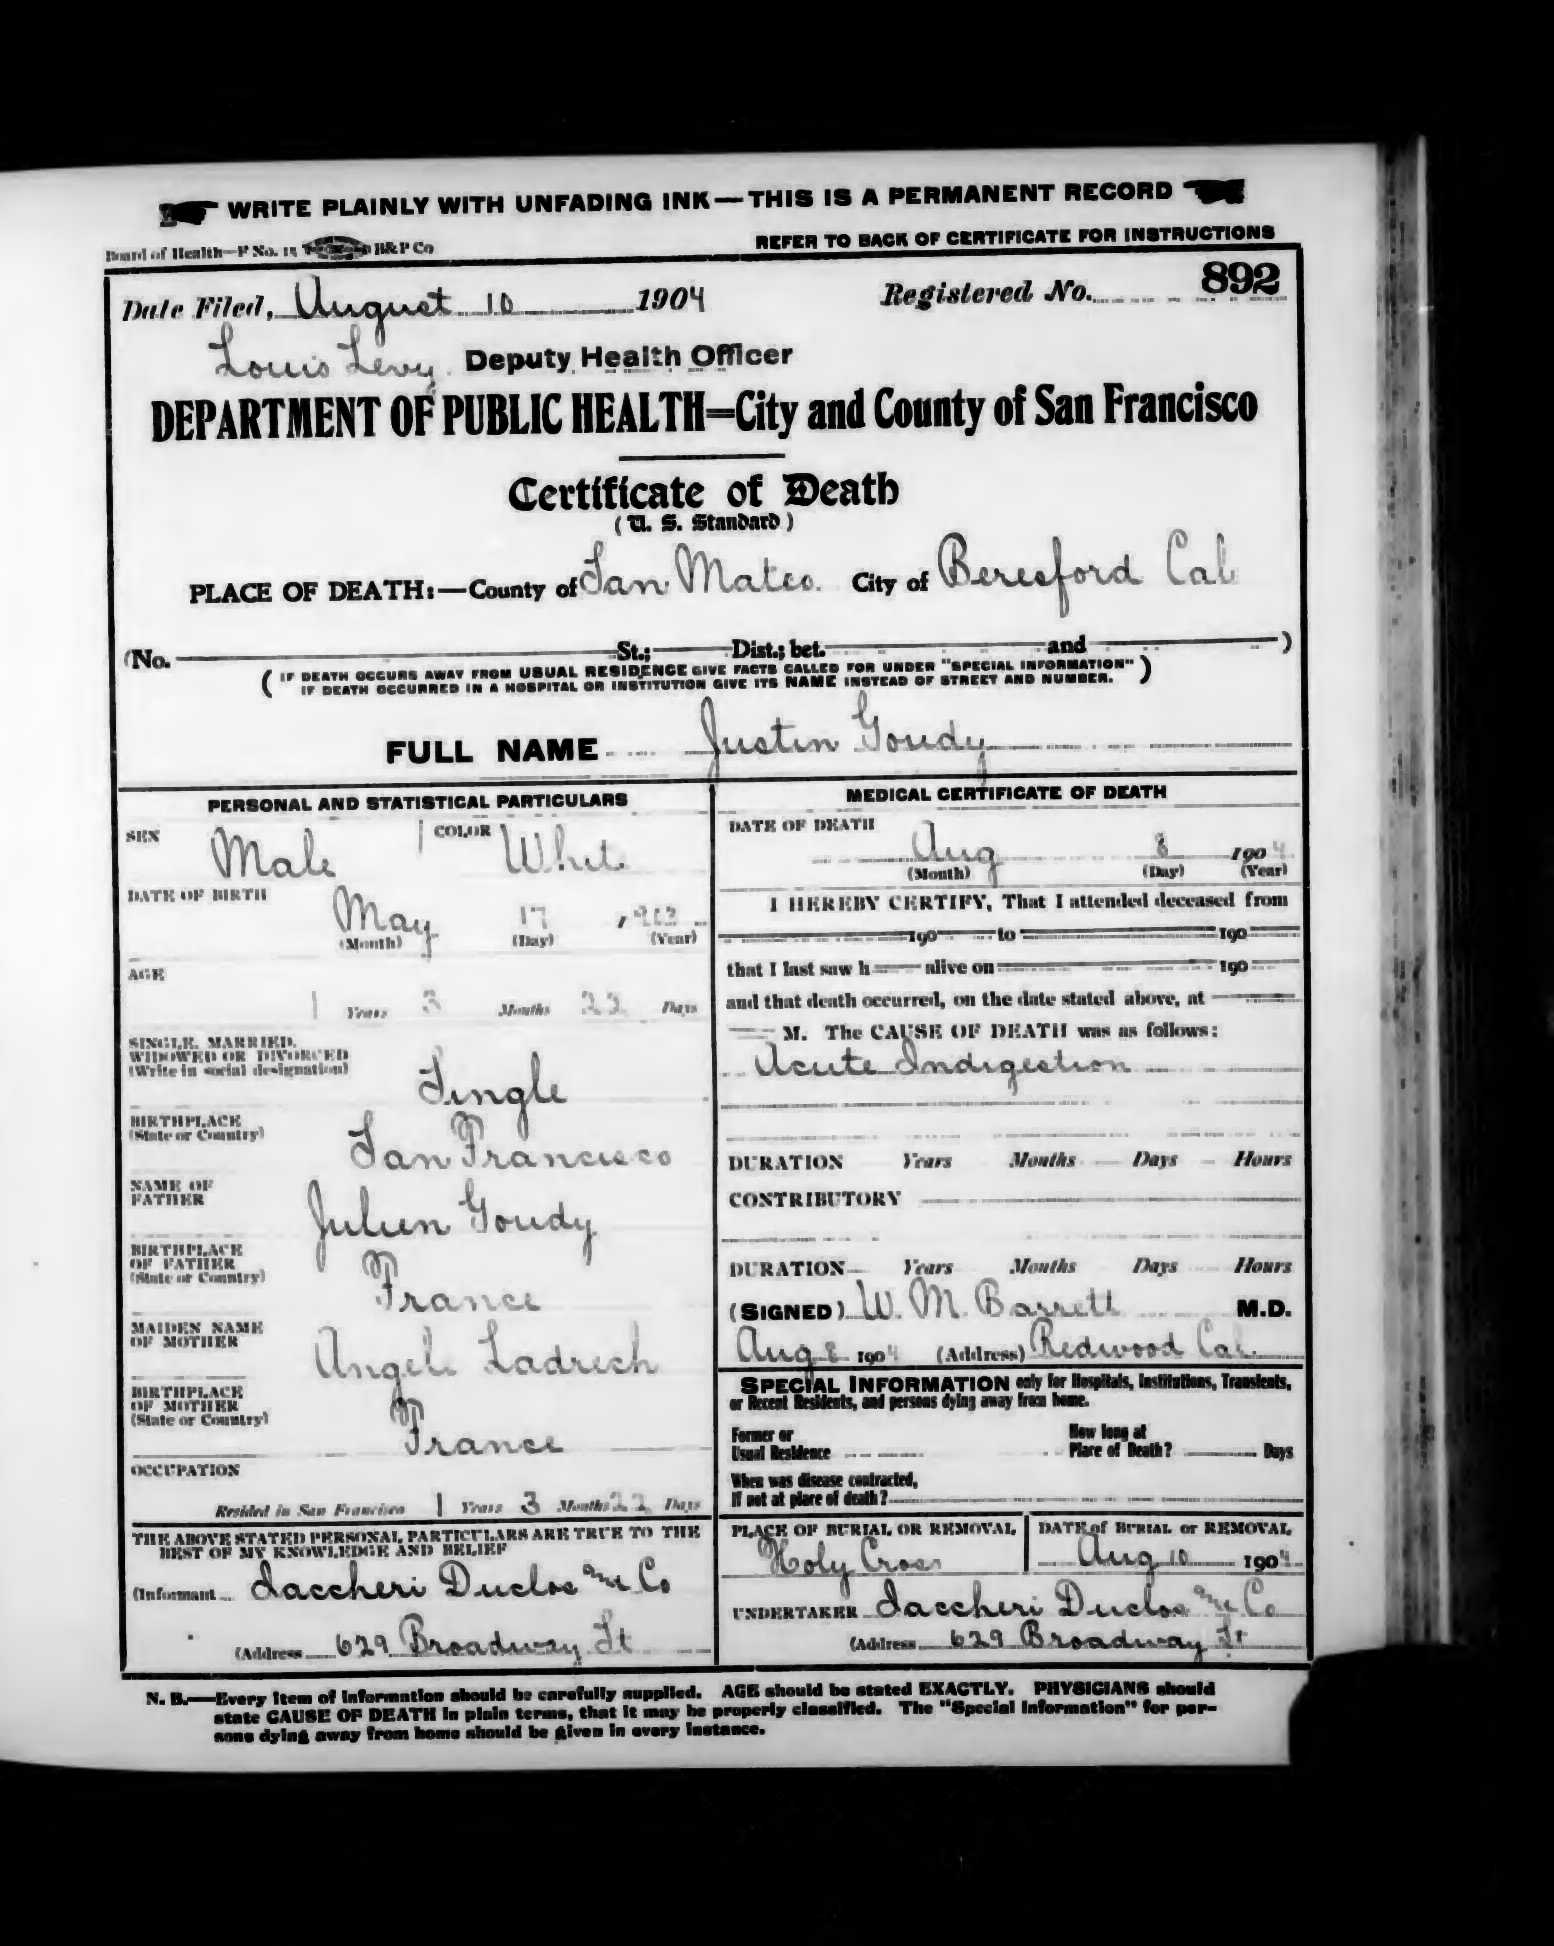 WRITE PLAINLY WITH UNFADING INK—THIS IS A PERMANENT RECORD
Board of Health—F No. 15 B&P Co
REFER TO BACK OF CERTIFICATE FOR INSTRUCTIONS
Date Filed, August 10 1904 Registered No. 892
Louis Levy Deputy Health Officer
DEPARTMENT OF PUBLIC HEALTH=City and County of San Francisco
Certificate of Death
(U. S. Standard)
PLACE OF DEATH:—County of San Mateo City of Beresford Cal
(No. St.; Dist.; bet. and )
(IF DEATH OCCURS AWAY FROM USUAL RESIDENCE GIVE FACTS CALLED FOR UNDER "SPECIAL INFORMATION"
IF DEATH OCCURRED IN A HOSPITAL OR INSTITUTION GIVE ITS NAME INSTEAD OF STREET AND NUMBER.)
FULL NAME Justin Goudy
PERSONAL AND STATISTICAL PARTICULARS
SEX Male COLOR White
DATE OF BIRTH
May 17, 1903
(Month) (Day) (Year)
AGE
1 Years 3 Months 22 Days
SINGLE, MARRIED,
WIDOWED OR DIVORCED
(Write in social designation)
Single
BIRTHPLACE
(State or Country)
San Francisco
NAME OF
FATHER
Julien Goudy
BIRTHPLACE
OF FATHER
(State or Country)
France
MAIDEN NAME
OF MOTHER
Angele Ladrech
BIRTHPLACE
OF MOTHER
(State or Country)
France
OCCUPATION
Resided in San Francisco 1 Years 3 Months 22 Days
THE ABOVE STATED PERSONAL PARTICULARS ARE TRUE TO THE
BEST OF MY KNOWLEDGE AND BELIEF
(Informant Iaccheri Duclos and Co
(Address 629 Broadway St
MEDICAL CERTIFICATE OF DEATH
DATE OF DEATH
Aug 8 1904
(Month) (Day) (Year)
I HEREBY CERTIFY, That I attended deceased from
190 to 190
that I last saw h alive on 190
and that death occurred, on the date stated above, at
M. The CAUSE OF DEATH was as follows:
Acute Indigestion
DURATION Years Months Days Hours
CONTRIBUTORY
DURATION Years Months Days Hours
(SIGNED) W. M. Barrett M.D.
Aug 8 1904 (Address) Redwood Cal.
SPECIAL INFORMATION only for Hospitals, Institutions, Transients,
or Recent Residents, and persons dying away from home.
Former or
Usual Residence
How long at
Place of Death? Days
When was disease contracted,
If not at place of death?
PLACE OF BURIAL OR REMOVAL
Holy Cross
DATE of BURIAL or REMOVAL
Aug 10 1904
UNDERTAKER Iaccheri Duclos and Co
(Address 629 Broadway St
N. B.—Every item of information should be carefully supplied. AGE should be stated EXACTLY. PHYSICIANS should
state CAUSE OF DEATH in plain terms, that it may be properly classified. The "Special Information" for per-
sons dying away from home should be given in every instance.